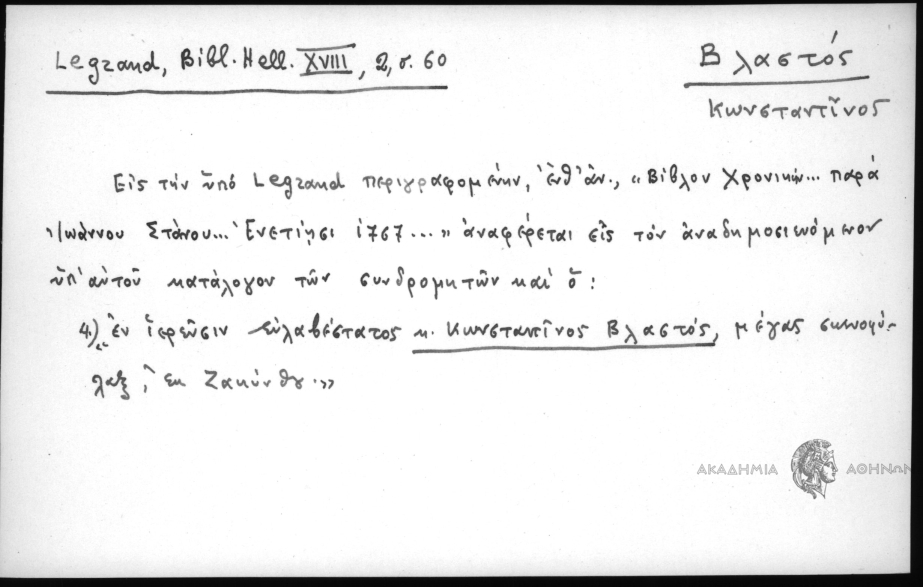 Legrand, Bibl. Hell. XVIII, 2, σ. 60
Βλαστός
Κωνσταντῖνος
Εἰς τὴν ὑπὸ Legrand περιγραφομένην, ἔνθ' ἀν., «Βίβλον Χρονικὴν... παρὰ
Ἰωάννου Στάνου... Ἐνετίῃσι 1767...» ἀναφέρεται εἰς τὸν ἀναδημοσιευόμενον
ὑπ' αὐτοῦ κατάλογον τῶν συνδρομητῶν καὶ ὁ:
4.) «ἐν ἱερεῦσιν εὐλαβέστατος κ. Κωνσταντῖνος Βλαστός, μέγας σκευοφύ-
λαξ, ἐκ Ζακύνθου.»
ΑΚΑΔΗΜΙΑ ΑΘΗΝΩΝ